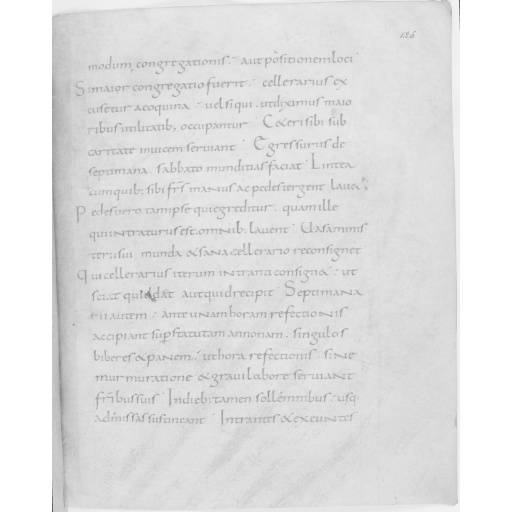 126
modum congregationis · aut positionem loci
Si maior congregatio fuerit · cellerarius ex
cusetur a coquina · vel siqui · ut diximus maio
ribus utilitatib; occupantur · Ceteri sibi sub
caritate invicem serviant · Egressurus de
septimana sabbato munditias faciat · Lintea
cum quib; sibi frs manus ac pedes tergent lavet
Pedes vero tam ipse qui egreditur · quam ille
qui intraturus est omnib; lavent · Vasa minis
terii sui munda & sana cellerario reconsignet
Qui cellerarius iterum intranti consignet · ut
sciat quid dat aut quid recipit · Septimana
rii autem · ante unam horam refectionis
accipiant sup statutam annonam · singulos
biberes & panem · ut hora refectionis · sine
murmuratione & gravi labore serviant
fribus suis · In dieb; tamen sollemnibus · usq
ad missas sustineant · Intrantes & exeuntes